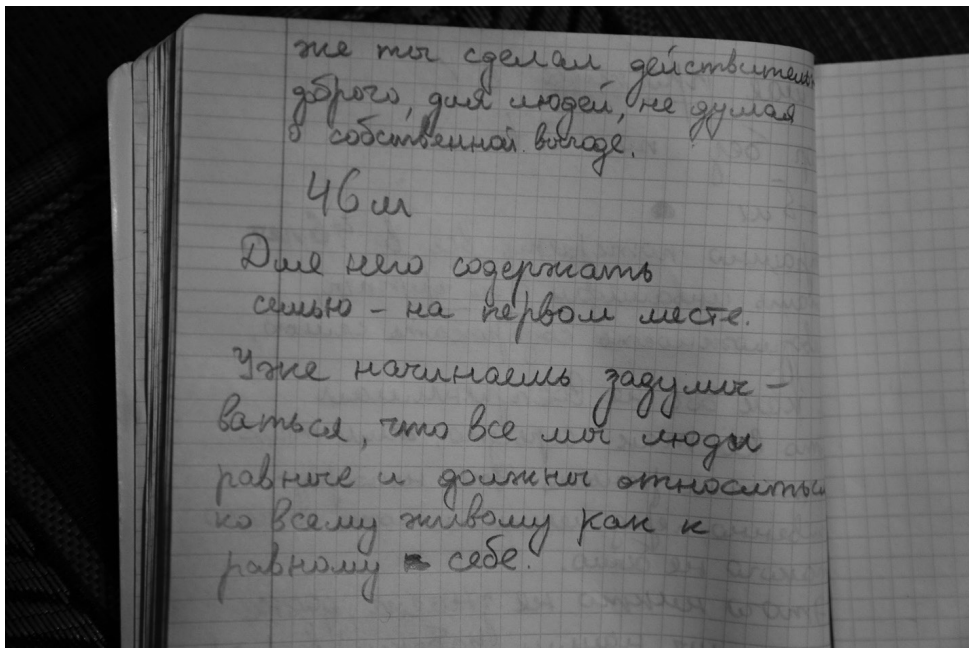 же ты сделал действительно
доброго, для людей, не думая
о собственной выгоде.
46 м
Для него содержать
семью - на первом месте.
Уже начинаешь задумы-
ваться, что все мы люди
равные и должны относиться
ко всему живому как к
равному себе.